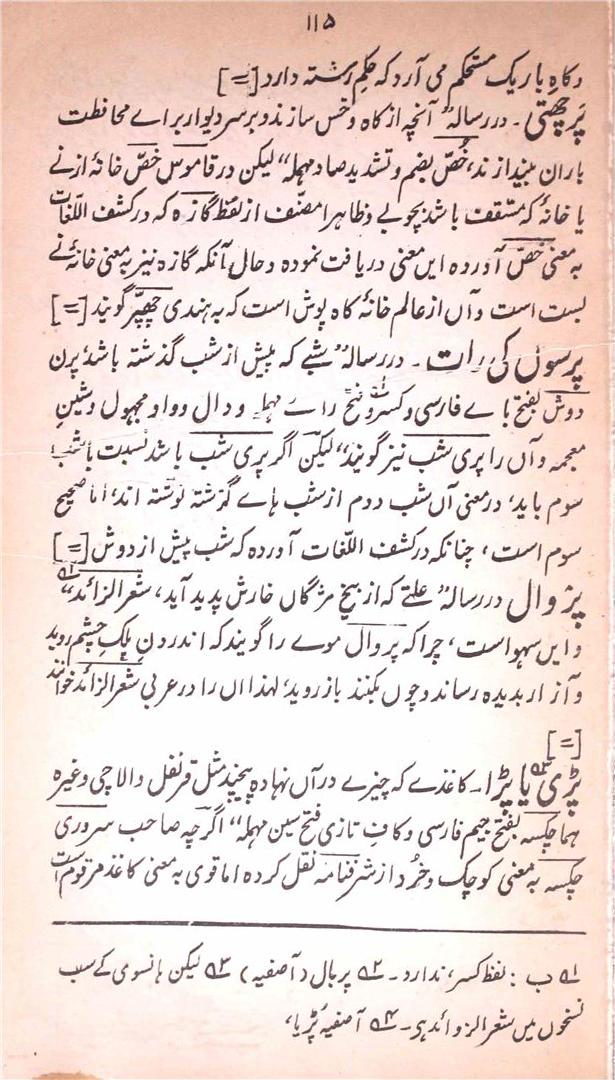 ۱۱۵
وکاہِ باریک مستحکم می آرد کہ حکمِ رشتہ دارد [=]
پَرچھتی ۔ در رسالہ "آنچہ از کاہ و خس سازند و بر سرِ دیوار براے محافظت
باران بیندازند، خُصّ بضم و تشدید صاد مہملہ" لیکن در قاموس خصّ خانۂ از نے
یا خانۂ کہ مسقف باشد بچوبے و ظاہرا مصنّف از لفظ گازہ کہ در کشف اللّغات
بہ معنی خصّ آوردہ ایں معنی دریافت نمودہ و حال آنکہ گازہ نیز بہ معنی خانۂ نے
بست است و آں از عالم خانۂ کاہ پوش است کہ بہ ہندی چھپّر گویند [=]
پرسوں کی رات ۔ در رسالہ "شبے کہ پیش از شب گذشتہ باشد، پرن
دوش بفتح باے فارسی و کسر و فتح راے مہملہ و دال و واو مجہول و شین
معجمہ و آں را پری شب نیز گویند" لیکن اگر پری شب باشد نسبت با شب
سوم باید، در معنی آں شب دوم از شب ہاے گزشتہ نوشتہ اند، اما صحیح
سوم است، چنانکہ در کشف اللّغات آوردہ کہ شب پیش از دوش [=]
پڑوال در رسالہ "علتے کہ از بیخِ مژگاں خارش پدید آید، شعر الزائد"
و ایں سہو است، چرا کہ پروال موے را گویند کہ اندرونِ پلکِ چشم روید
و آزار بدیدہ رساند و چوں بکنند باز روید، لہذا آں را در عربی شعر الزائد خوانند
[=]
پڑی یا پڑا ۔ کاغذے کہ چیزے در آں نہادہ پیچند مثل قرنفل و الاچی وغیرہ
ہما چکسہ بفتح جیم فارسی و کافِ تازی فتح سین مہملہ" اگرچہ صاحب سروری
چکسہ بہ معنی کوچک و خرد از شرفنامہ نقل کردہ اما قوی بہ معنی کاغذ مرقوم است
۱؎ ب : لفظ کسر، ندارد ۔ ۲؎ پربال (آصفیہ) ۳؎ لیکن ہانسوی کے سب
نسخوں میں شعر الزوائد ہی ۔ ۴؎ آصفیہ پُڑیا،